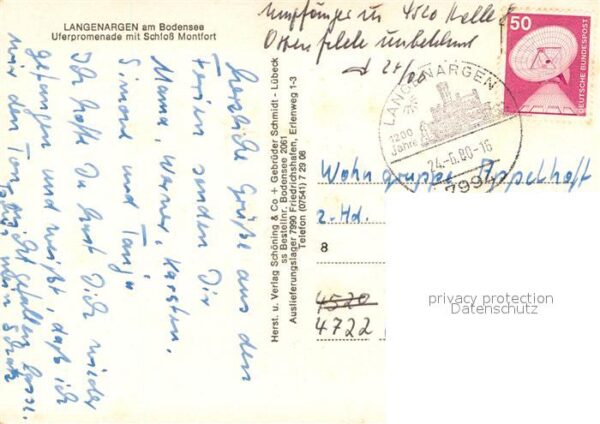 LANGENARGEN am Bodensee
Uferpromenade mit Schloß Montfort
Herzliche Grüße aus den
Ferien senden Dir
Mama, Werner, Karsten,
Simone und Tanja
Ich hoffe Du hast Dich wieder
gefangen und weißt, daß ich
mir den Ton nicht gefallen lasse.
Herst. u. Verlag Schöning & Co + Gebrüder Schmidt - Lübeck
ss Bestellnr. Bodensee 2061
Auslieferungslager 7990 Friedrichshafen, Erlenweg 1-3
Telefon (07541) 7 29 08
Empfänger in 4520 Melle 8
Osterfelde unbekannt
50
DEUTSCHE BUNDESPOST
LANGENARGEN
1200
Jahre
24.-6.80-16
7994
Wohngruppe Appelhoff
z. Hd.
8
4520
4722
privacy protection
Datenschutz